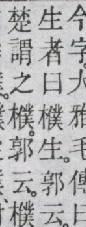 今字大雅毛傳曰
生者曰樸生。郭云。
楚謂之樸。郭云。樸